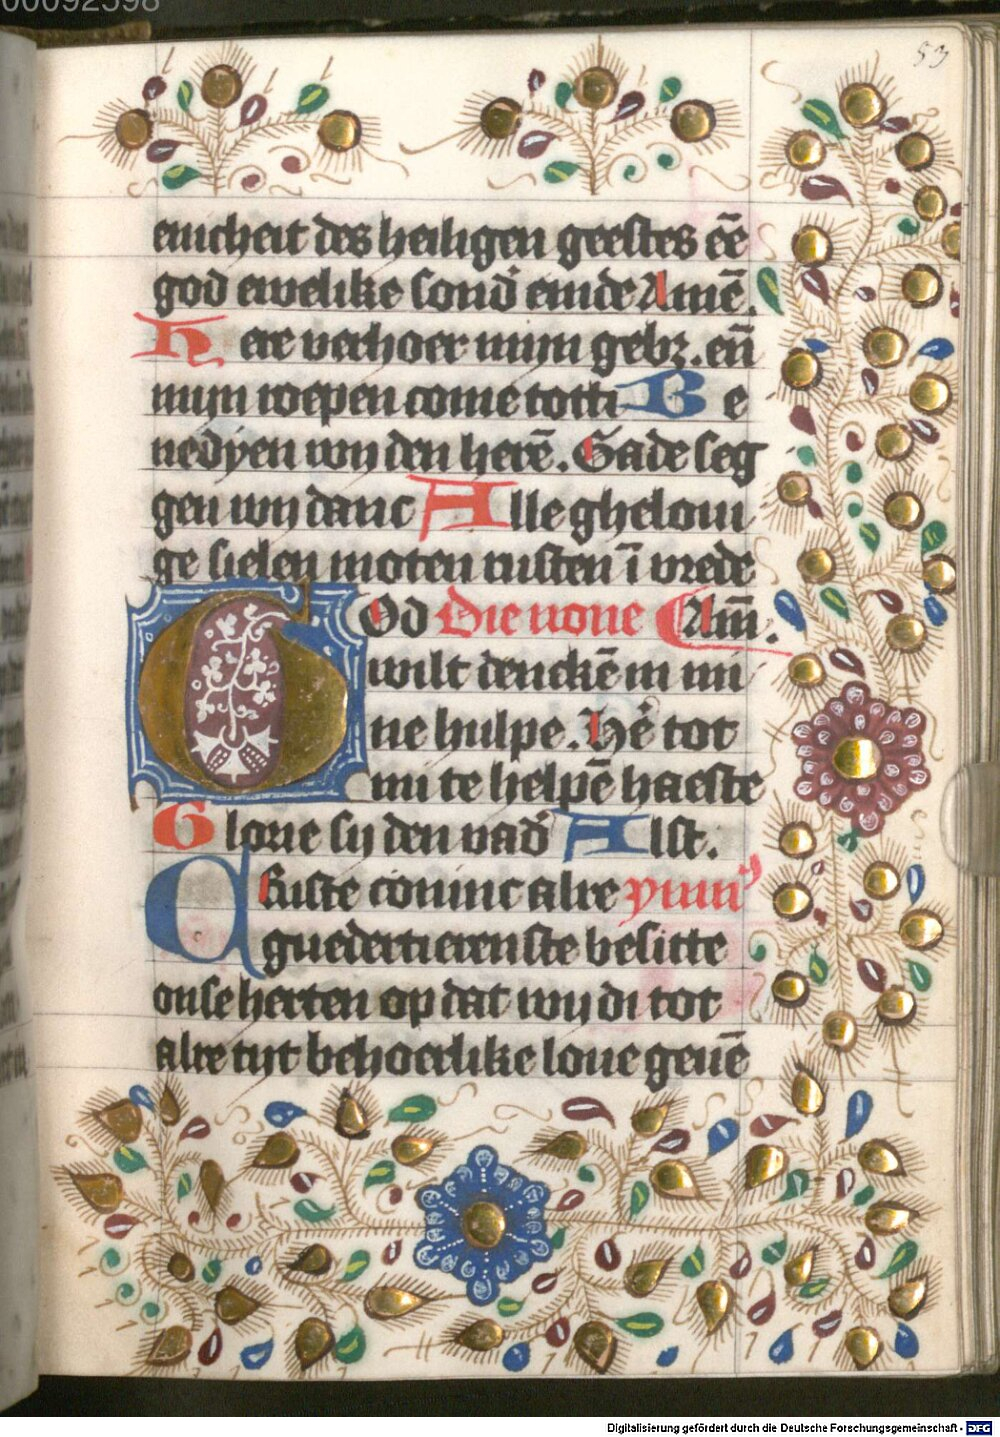 00092598
53
enicheit des heiligen geestes eē
god ewelike sond' einde Amē.
Here verhoer mijn gebz. eñ
mijn roepen come totti Be
nedÿen wij den herē. Gade seg
gen wij danc Alle ghelovi
ge sielen moten rusten ī vrede
God Die none Am̄.
wilt denckē in mi
ne hulpe. He' tot
mi te helpē haeste
Glorie sij den vad' Alst.
Guste coninc alre ymn'
guedertierenste besitte
onse herten op dat wij di tot
alre tijt behoerlike love gevē
Digitalisierung gefördert durch die Deutsche Forschungsgemeinschaft - DFG